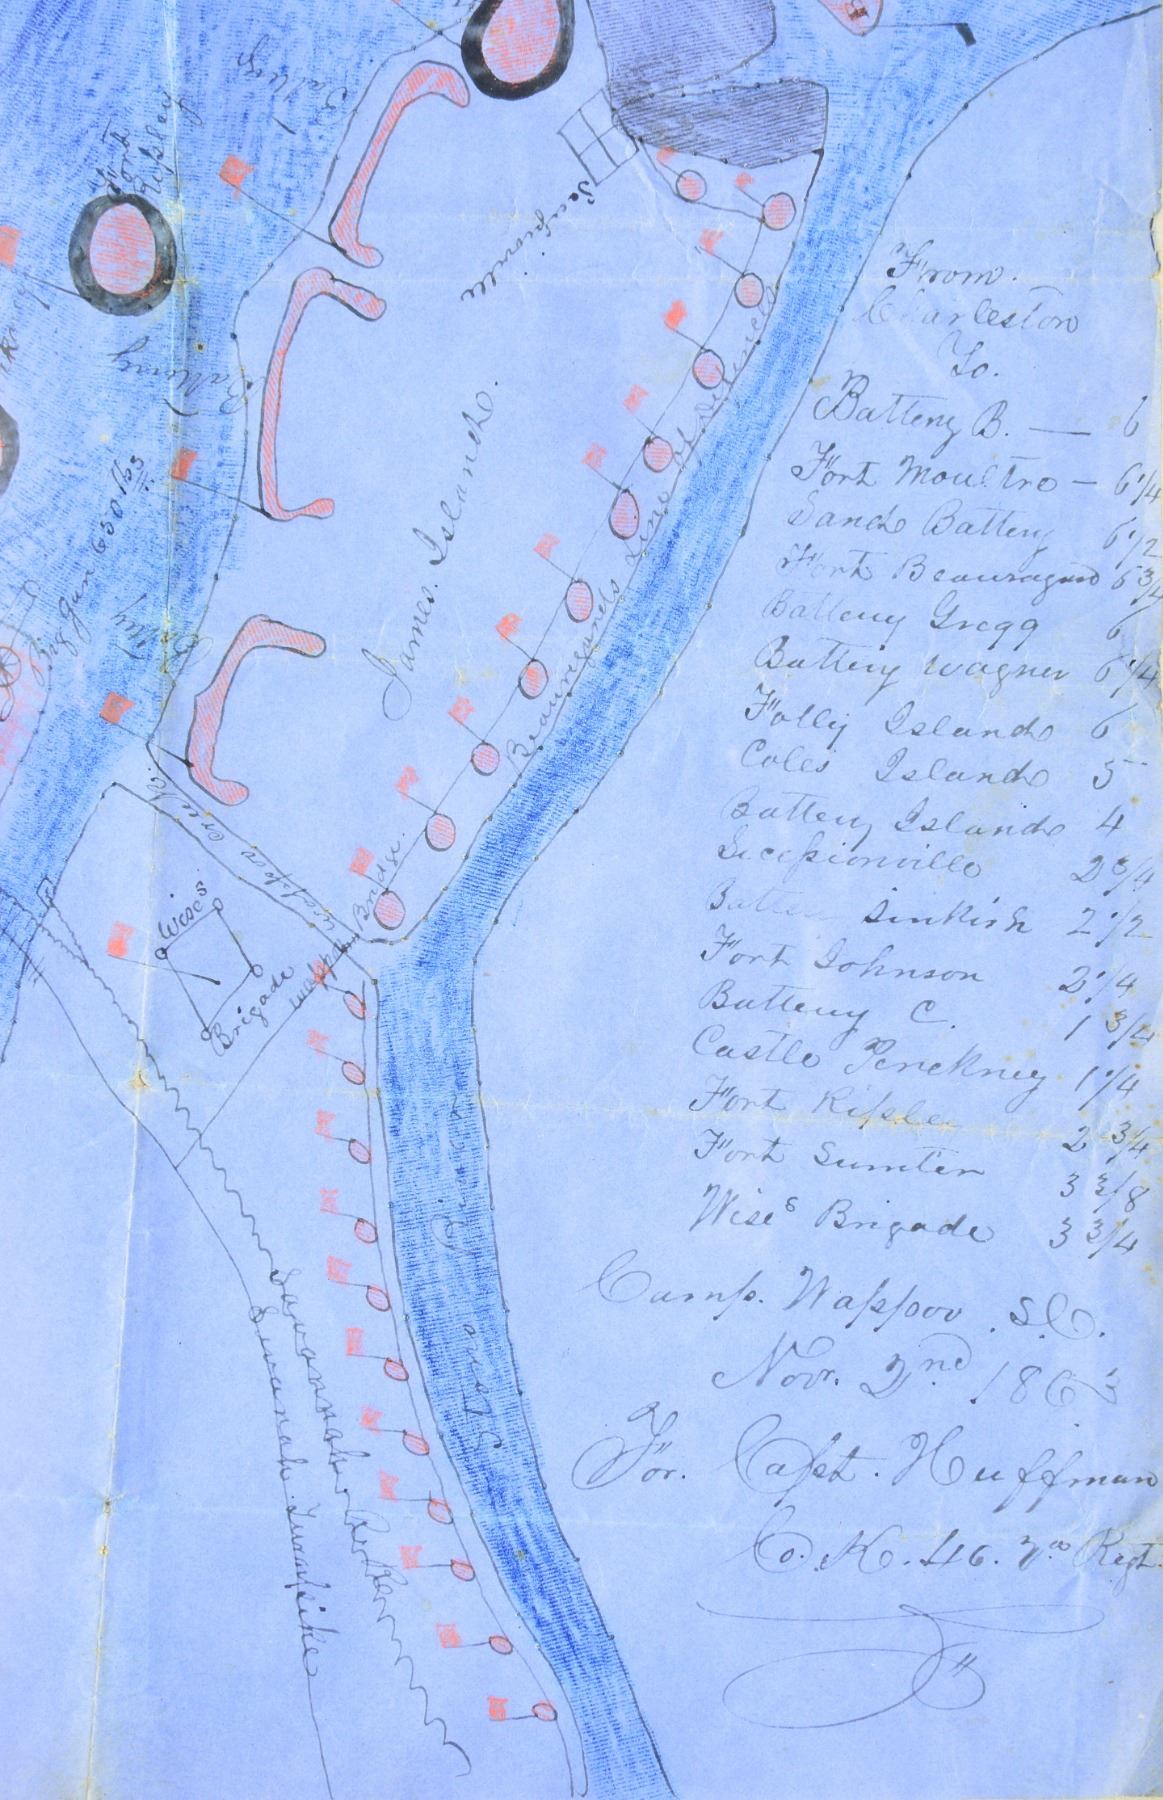 Battery
Fort
Ripley
Secessionville
Battery
Big Gun 650 lbs
James. Island.
Beauregards Line of Defences
Wappoo
Wises
Brigade
Stono
Savannah
Savanah Turnpike
From.
Charleston
To.
Battery B. — 6
Fort Moultre — 6 1/4
Sand Battery 6 1/2
Fort Beauragard 6 3/4
Battery Gregg 6
Battery Wagner 6 1/4
Folly Island 6
Coles Island 5
Battery Island 4
Secessionville 2 3/4
Battery Sinkish 2 1/2
Fort Johnson 2 1/4
Battery C. 1 3/4
Castle Penckney 1 1/4
Fort Ripley 2 3/4
Fort Sumter 3 3/8
Wises Brigade 3 3/4
Camp. Wappoo. S.C.
Nov. 2nd 1863
For. Capt. Huffman
Co. K. 46. Va Regt.